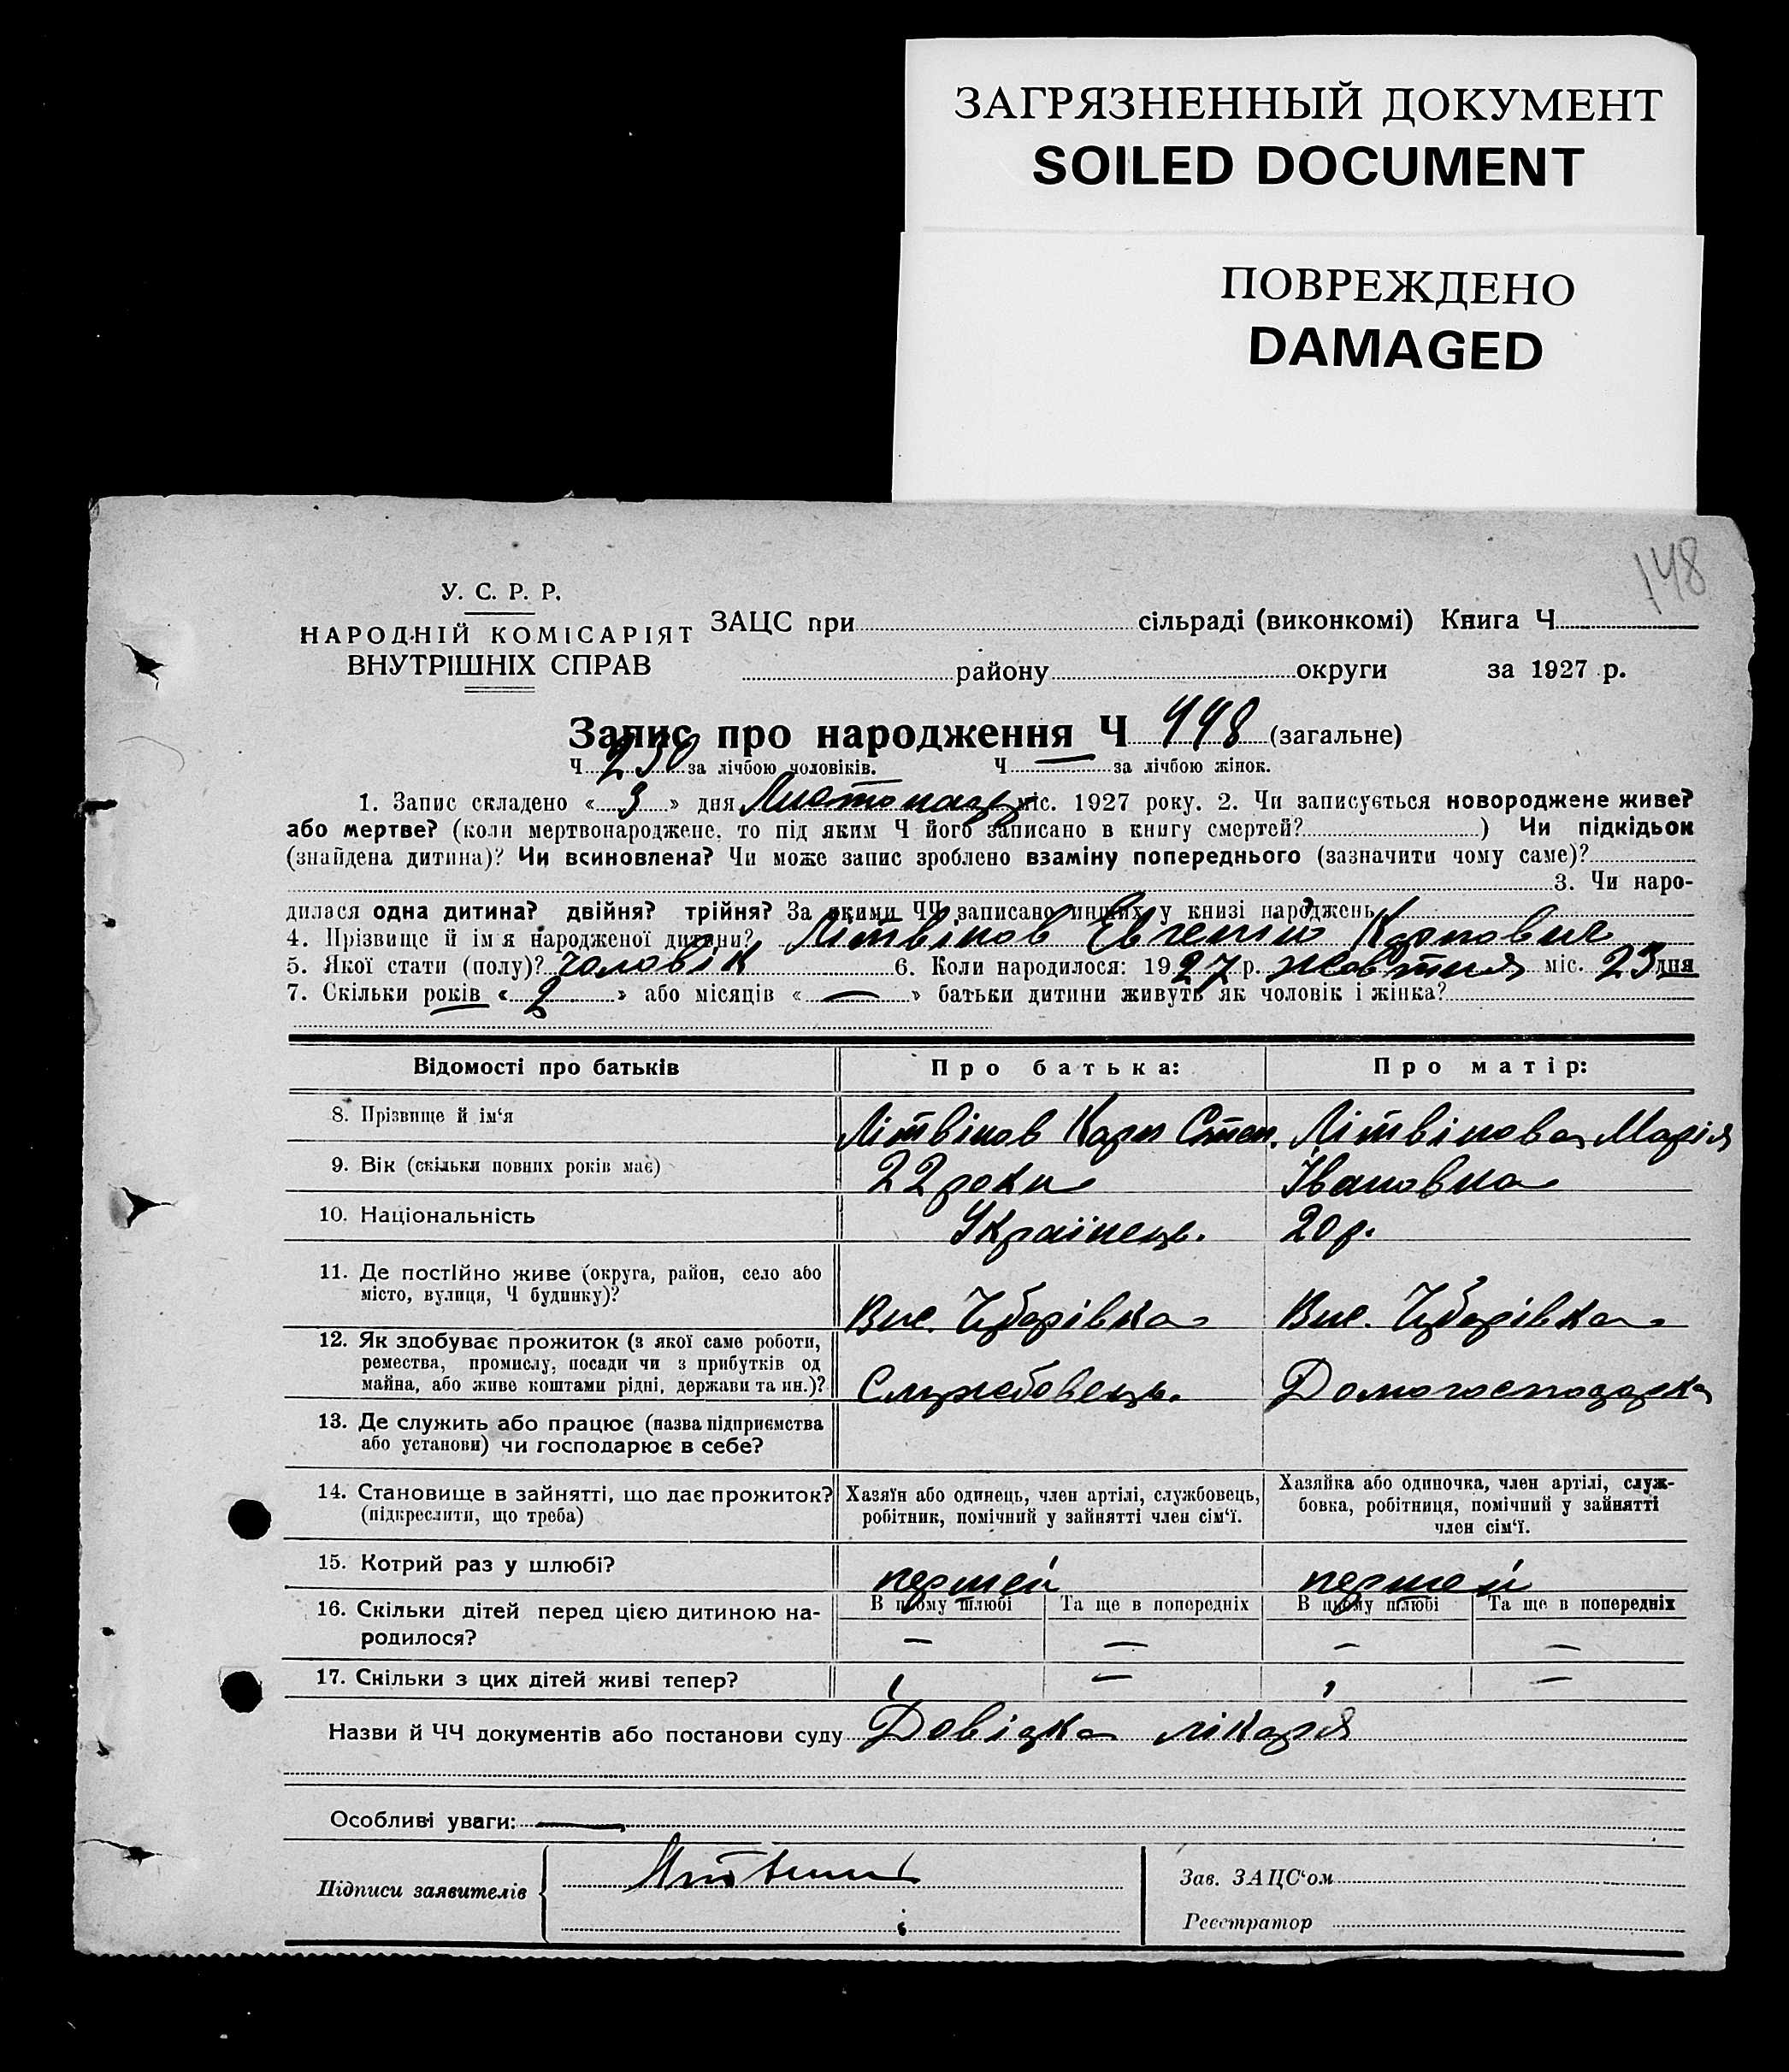 ЗАГРЯЗНЕННЫЙ ДОКУМЕНТ
SOILED DOCUMENT
ПОВРЕЖДЕНО
DAMAGED
148
У. С. Р. Р.
НАРОДНІЙ КОМІСАРІЯТ
ВНУТРІШНІХ СПРАВ
ЗАЦС при сільраді (виконкомі) Книга Ч
району округи за 1927 р.
Запис про народження Ч 448 (загальне)
Ч 230 за лічбою чоловіків. Ч — за лічбою жінок.
1. Запис складено « 3 » дня Листопада міс. 1927 року. 2. Чи записується новороджене живе?
або мертве? (коли мертвонароджене, то під яким Ч його записано в книгу смертей? ) Чи підкідьок
(знайдена дитина)? Чи всиновлена? Чи може запис зроблено взаміну попереднього (зазначити чому саме)?
3. Чи наро-
дилася одна дитина? двійня? трійня? За якими ЧЧ записано инших у книзі народжень
4. Прізвище й ім'я народженої дитини? Літвінов Евгеній Карпович
5. Якої стати (полу)? Чоловік 6. Коли народилося: 1927 р. жовтня міс. 23 дня
7. Скільки років « 2 » або місяців « — » батьки дитини живуть як чоловік і жінка?
Відомості про батьків Про батька: Про матір:
8. Прізвище й ім'я Літвінов Карп Степ. Літвінова Марія
9. Вік (скільки повних років має) 22 роки Івановна
10. Національність Українець. 20 р.
11. Де постійно живе (округа, район, село або
місто, вулиця, Ч будинку)? Вис. Чубарівка Вис. Чубарівка
12. Як здобуває прожиток (з якої саме роботи,
ремества, промислу, посади чи з прибутків од
майна, або живе коштами рідні, держави та ин.)? Службовець. Домогосподарка
13. Де служить або працює (назва підприємства
або установи) чи господарює в себе?
14. Становище в зайнятті, що дає прожиток?
(підкреслити, що треба)
Хазяїн або одинець, член артілі, службовець,
робітник, помічний у зайнятті член сім'ї.
Хазяйка або одиночка, член артілі, служ-
бовка, робітниця, помічний у зайнятті
член сім'ї.
15. Котрий раз у шлюбі? першей першей
16. Скільки дітей перед цією дитиною на-
родилося?
В цьому шлюбі Та ще в попередніх В цьому шлюбі Та ще в попередніх
— — — —
17. Скільки з цих дітей живі тепер? — —
Назви й ЧЧ документів або постанови суду Довідка лікаря
Особливі уваги: —
Підписи заявителів
Зав. ЗАЦС'ом
Реєстратор